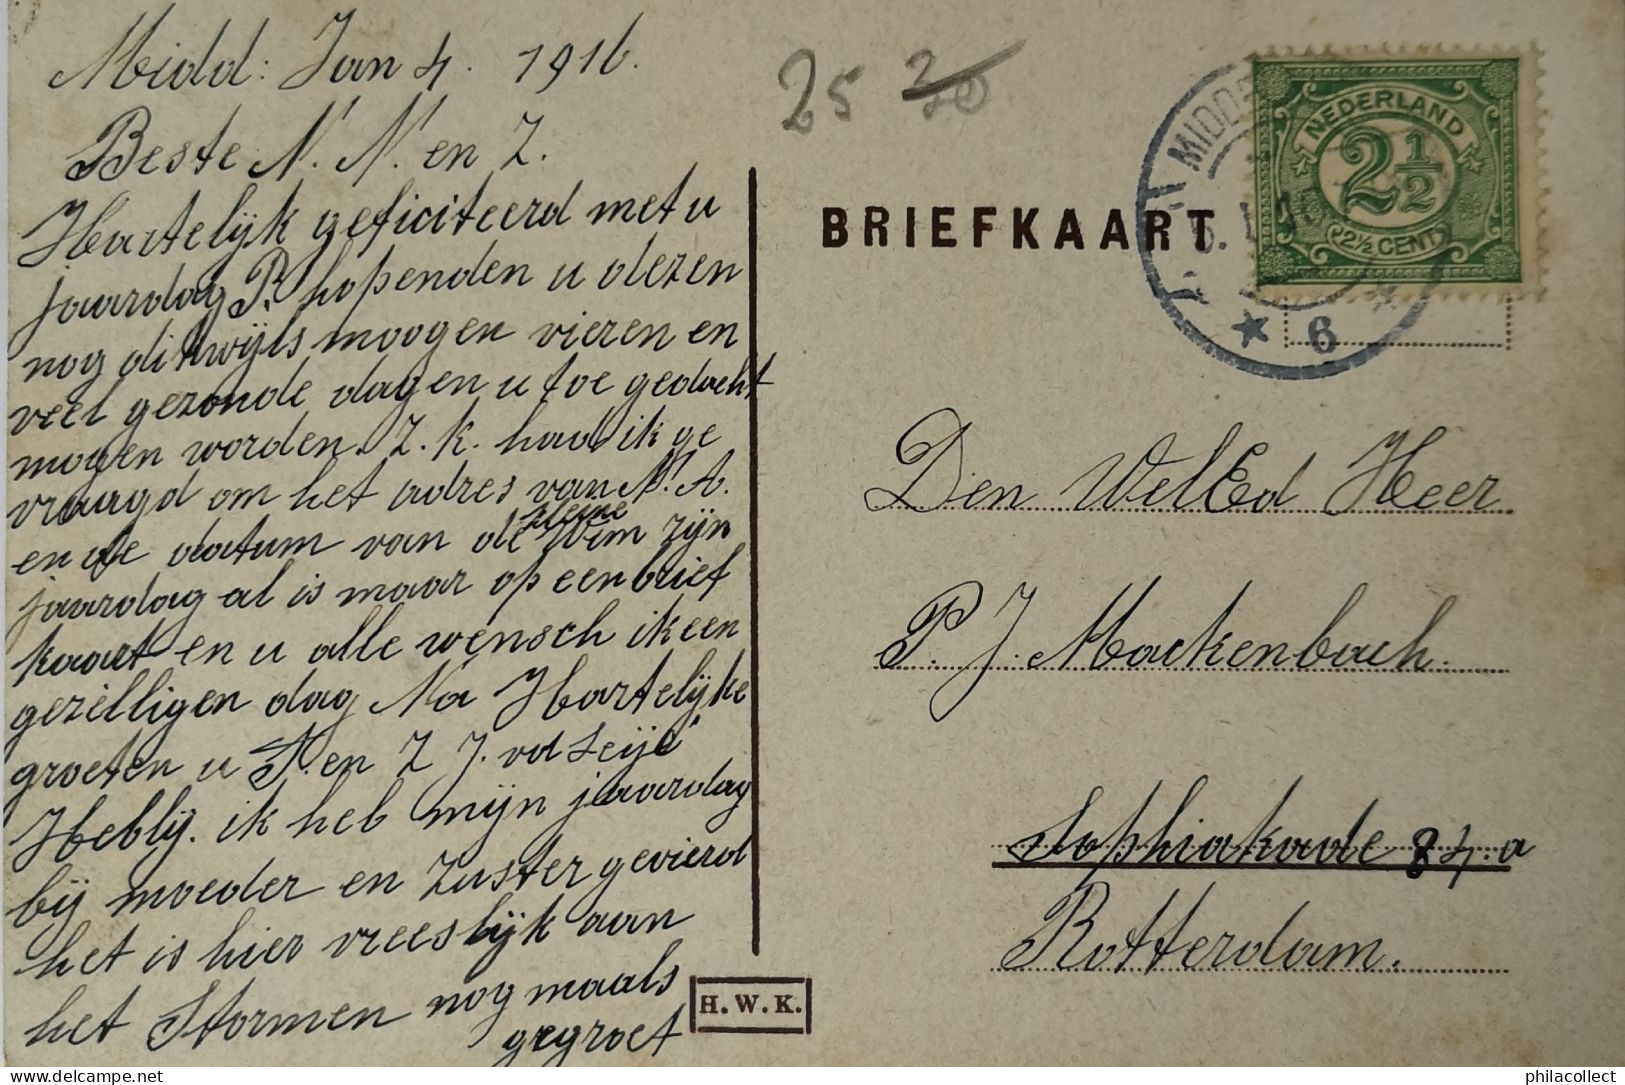 Midd: Jan 4. 1916.
Beste N. N. en Z.
Hartelijk geficiteerd met u
jaardag P. hopenden u dezen
nog dikwijls moogen vieren en
veel gezonde dagen u toe gedacht
mogen worden. Z. K. had ik ge
vraagd om het adres van N. A.
en de datum van de kleine Wim zijn
jaardag al is maar op een brief
kaart en u alle wensch ik een
gezelligen dag Na Hartelijke
groeten u N. en Z J. vd Leije
Heblij. ik heb mijn jaardag
bij moeder en zuster gevierd
het is hier vreeslijk aan
het Stormen nog maals
gegroet
25 20
BRIEFKAART
MIDDE
6
NEDERLAND
2 1/2
2½ CENT
Den WelEd Heer
P. J. Mackenbach.
Sophiakade 84.a
Rotterdam.
H. W. K.
Delcampe.net
philacollect